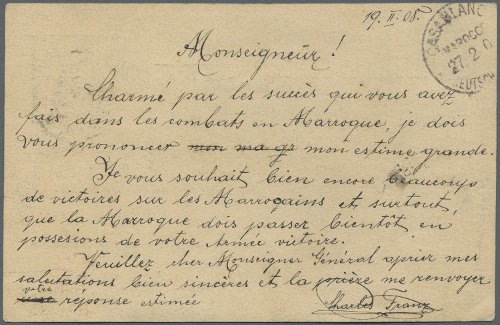 19. II. 08.
CASABLANC
MAROCCO
27. 2. 0
DEUTSCH
Monseigneur !
Charmé par les succès qui vous avez
fais dans les combats en Marroque, je dois
vous prononcer mon ma gs mon estime grande.
Je vous souhait bien encore beaucoup
de victoires sur les Marroqains et surtout,
que la Marroque dois passer bientôt en
possesions de votre Armée victoire.
Veuillez cher Monseigner Général aprier mes
salutations bien sincères et la prière me renvoyer
votre réponse estimée
Charles Franz